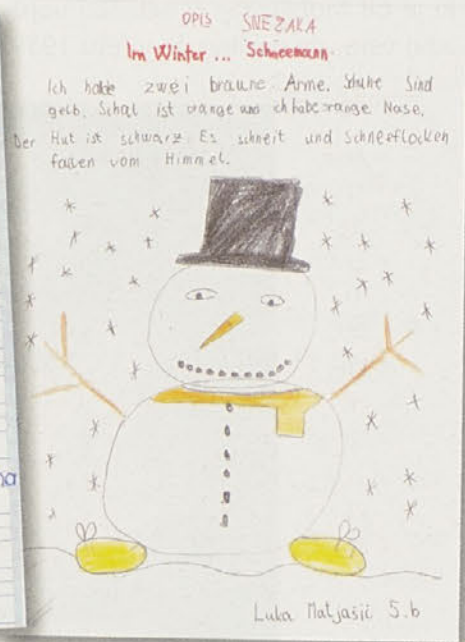 OPIS SNEŽAKA
Im Winter ... Schneemann
Ich habe zwei braune Arme. Schuhe Sind
gelb. Schal ist orange und ich habe orange Nase.
Der Hut ist schwarz. Es schneit und Schneeflocken
fallen vom Himmel.
Luka Matjašič 5.b
na